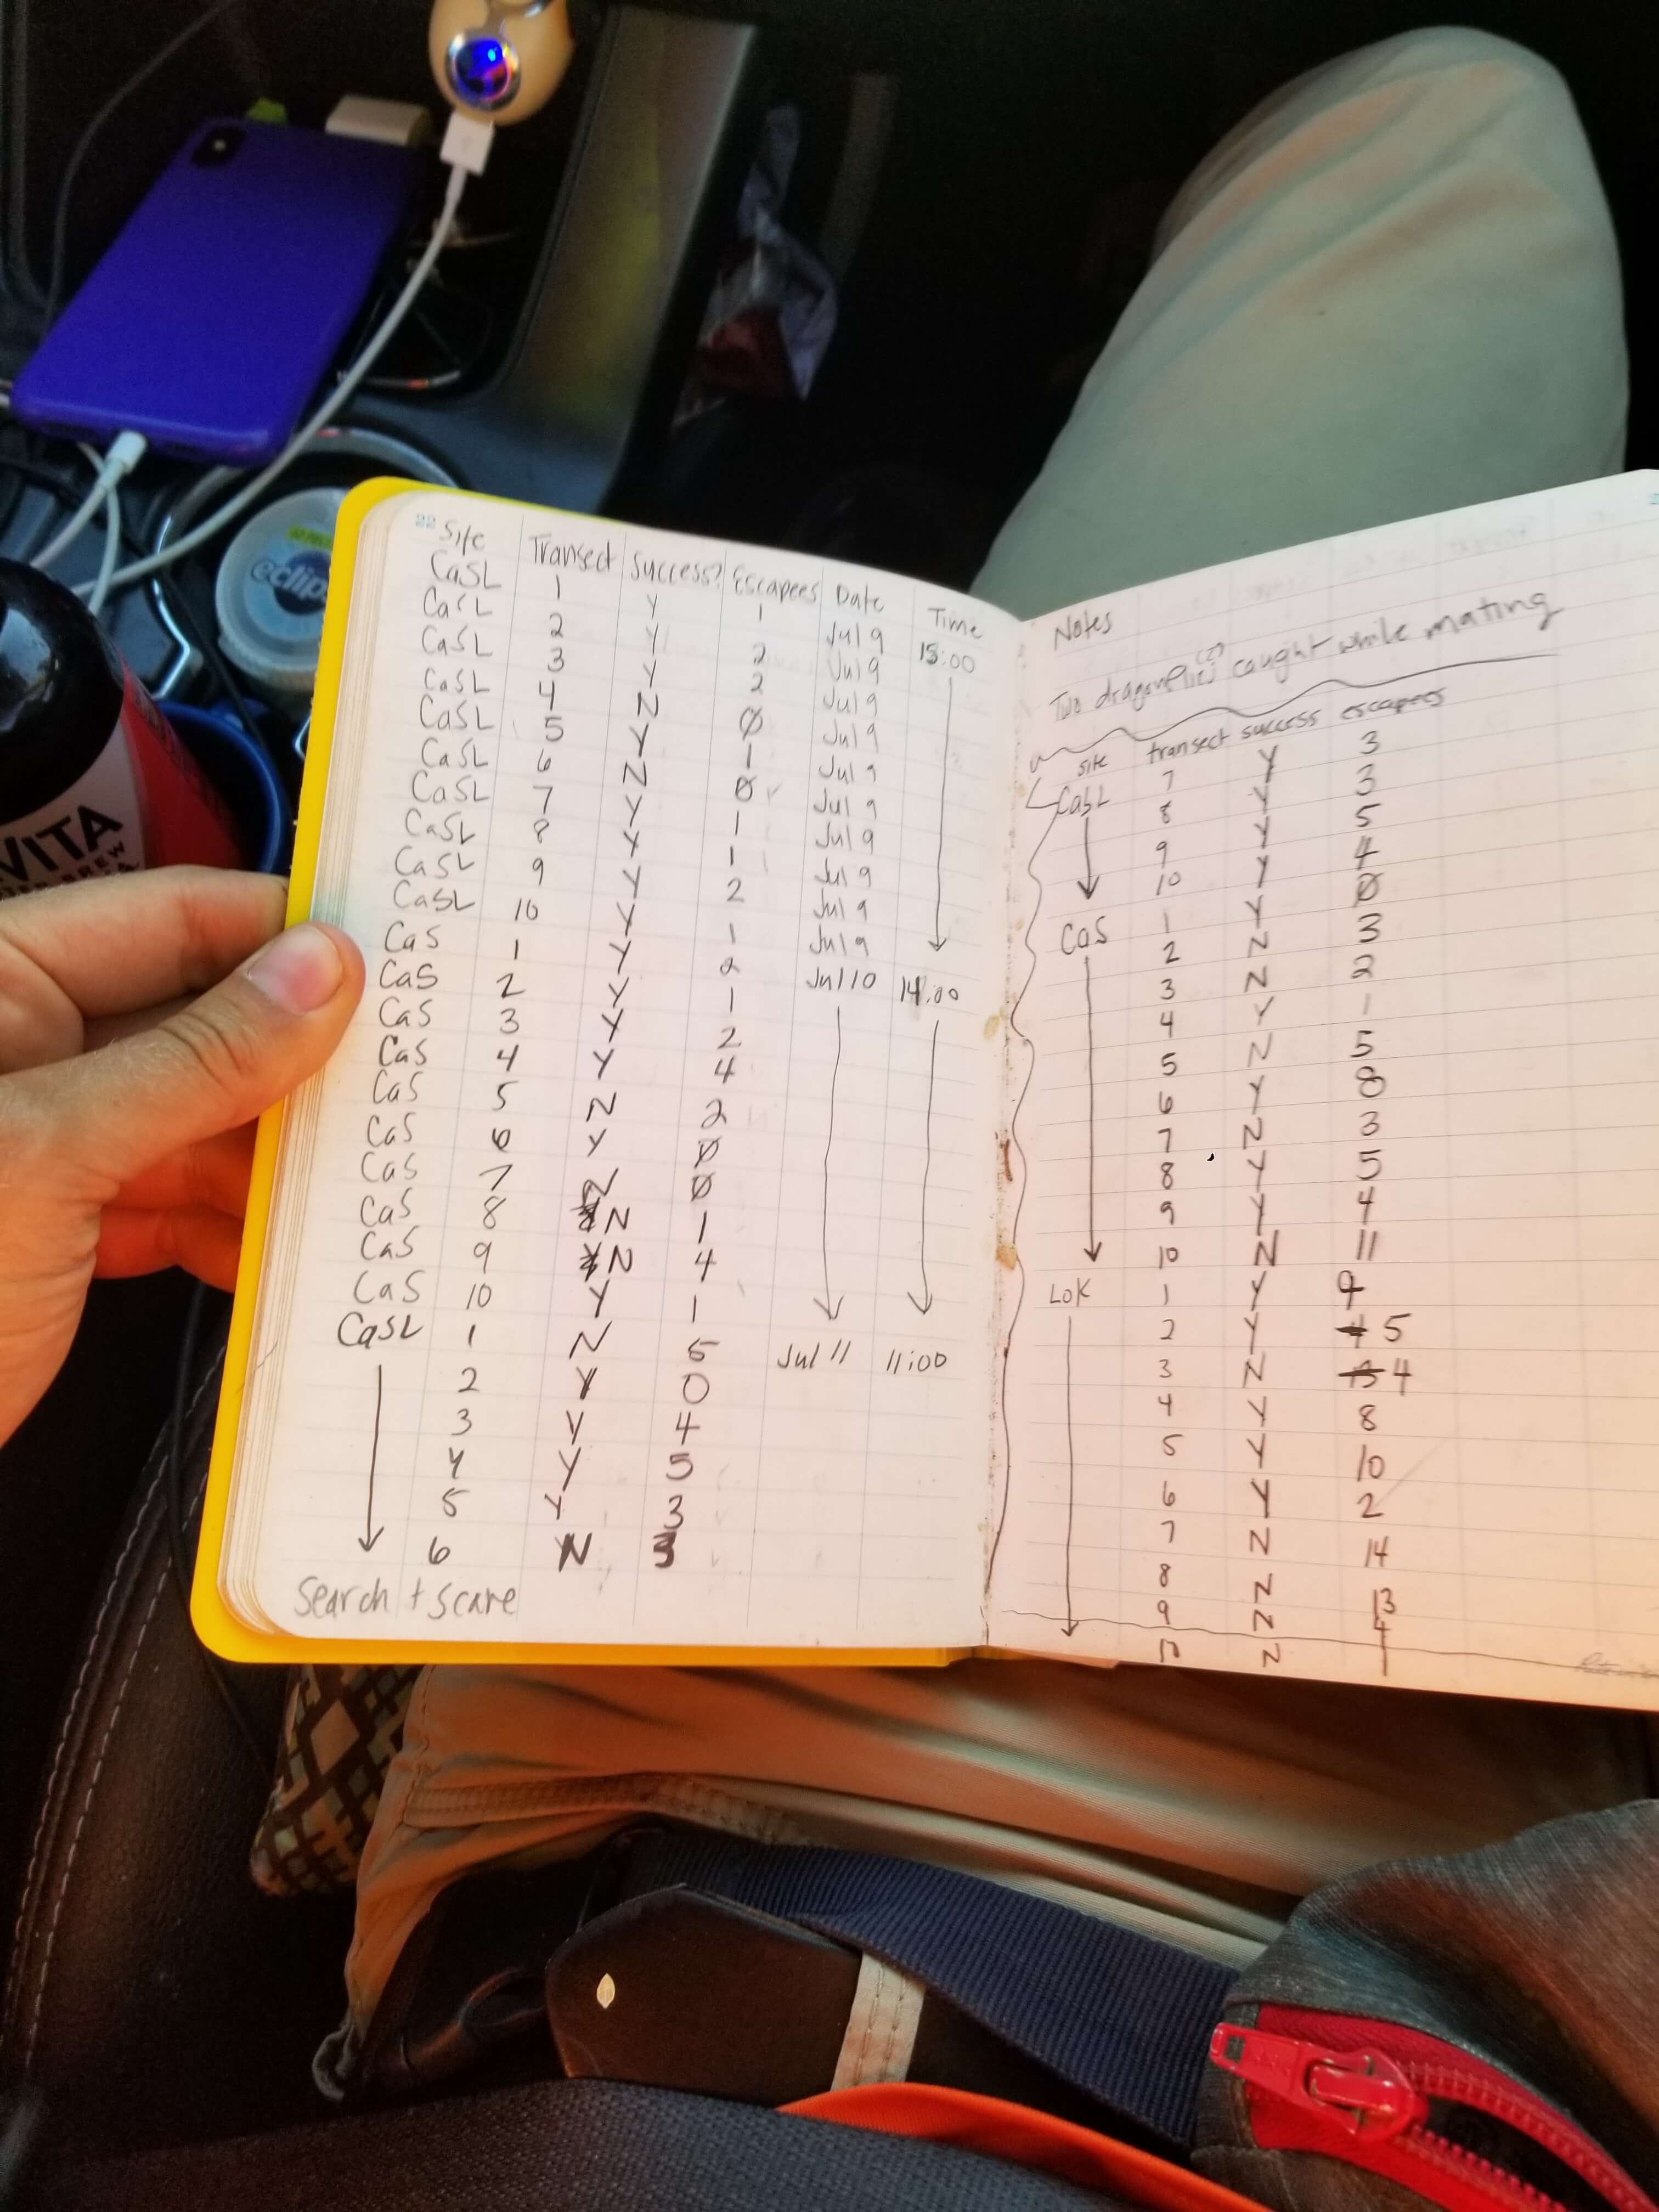 22
Site Transect Success? Escapees Date Time
CaSL 1 Y 1 Jul 9 15:00
CaSL 2 Y 2 Jul 9
CaSL 3 Y 2 Jul 9
CaSL 4 N Ø Jul 9
CaSL 5 Y 1 Jul 9
CaSL 6 N Ø Jul 9
CaSL 7 Y 1 Jul 9
CaSL 8 Y 1 Jul 9
CaSL 9 Y 2 Jul 9
CaSL 10 Y 1 Jul 9
CaS 1 Y 2 Jul 10 14:00
CaS 2 Y 1
CaS 3 Y 2
CaS 4 Y 4
CaS 5 N 2
CaS 6 Y Ø
CaS 7 N Ø
CaS 8 N 1
CaS 9 N 4
CaS 10 Y 1
CaSL 1 N 5 Jul 11 11:00
2 Y 0
3 Y 4
4 Y 5
5 Y 3
6 N 3
Search + scare
Notes
Two dragonflies (2) caught while mating
site transect success escapees
CaSL 7 Y 3
8 Y 3
9 Y 5
10 Y 4
CaS 1 Y Ø
2 N 3
3 N 2
4 Y 1
5 N 5
6 Y 8
7 N 3
8 Y 5
9 Y 4
10 N 11
LoK 1 Y 9
2 Y 5
3 N 4
4 Y 8
5 Y 10
6 Y 2
7 N 14
8 N 13
9 N 4
10 N 1
eclips
VITA